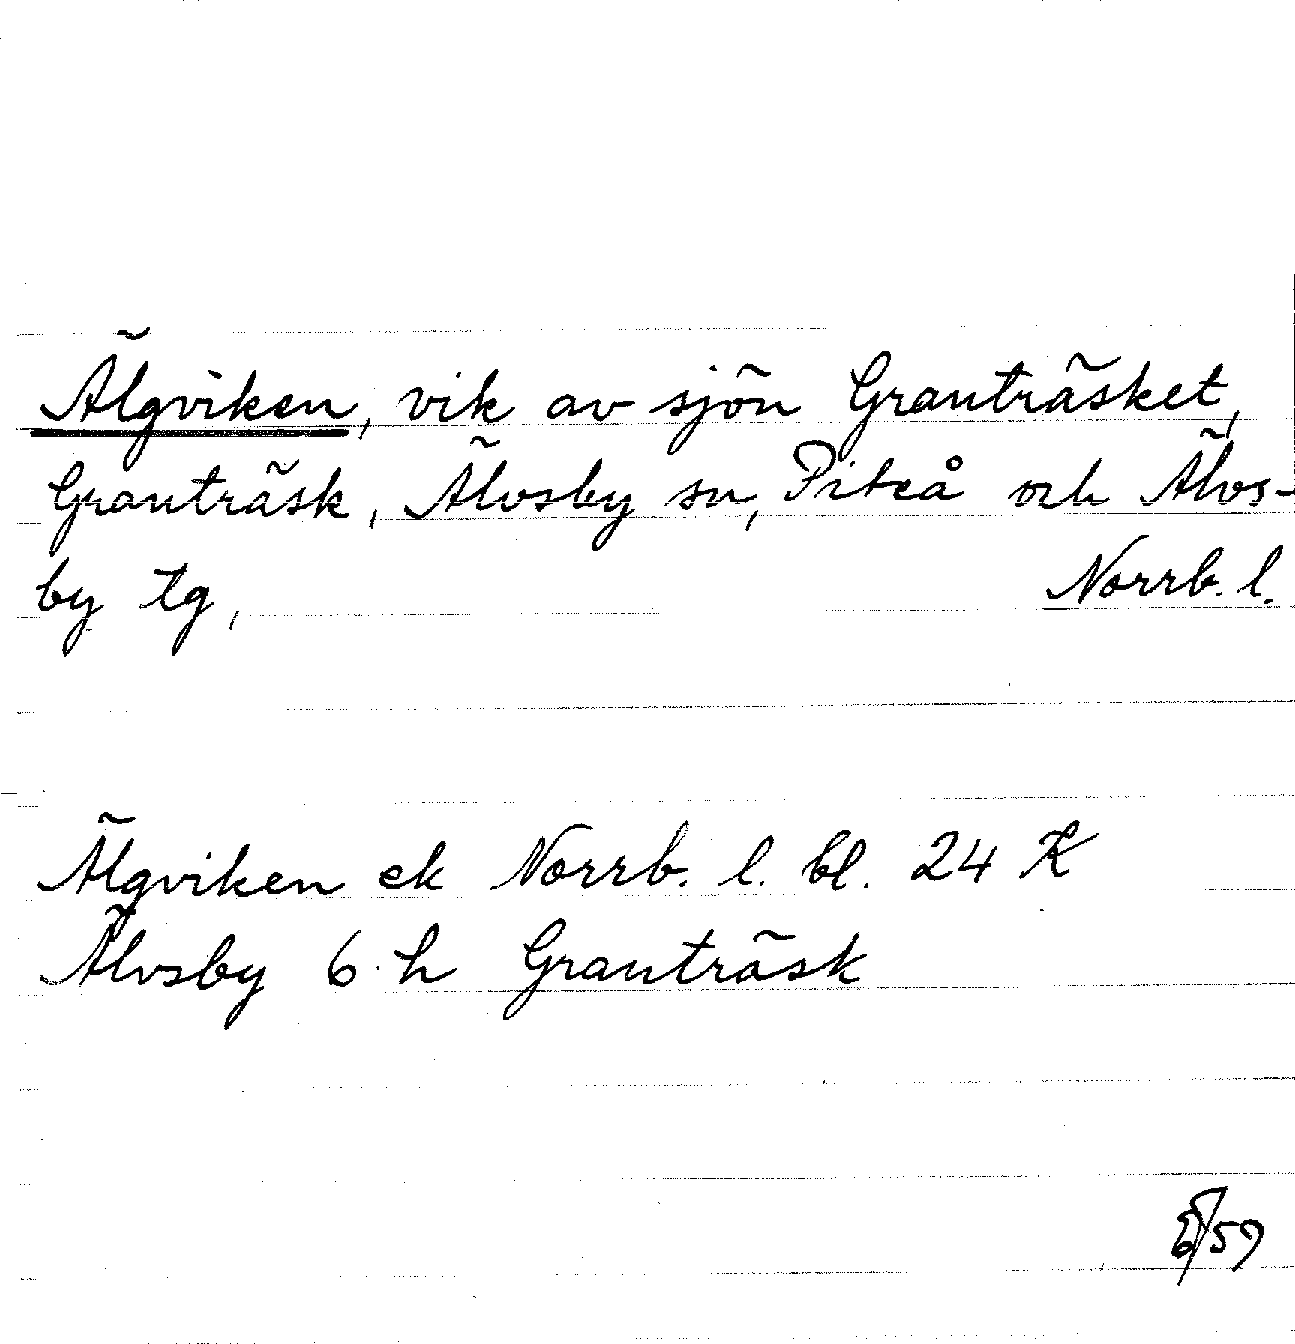 Älgviken, vik av sjön Granträsket,
Granträsk, Älvsby sn, Piteå och Älvs-
by tg, Norrb. l.
Älgviken ek Norrb. l. bl. 24 K
Älvsby 6 h Granträsk